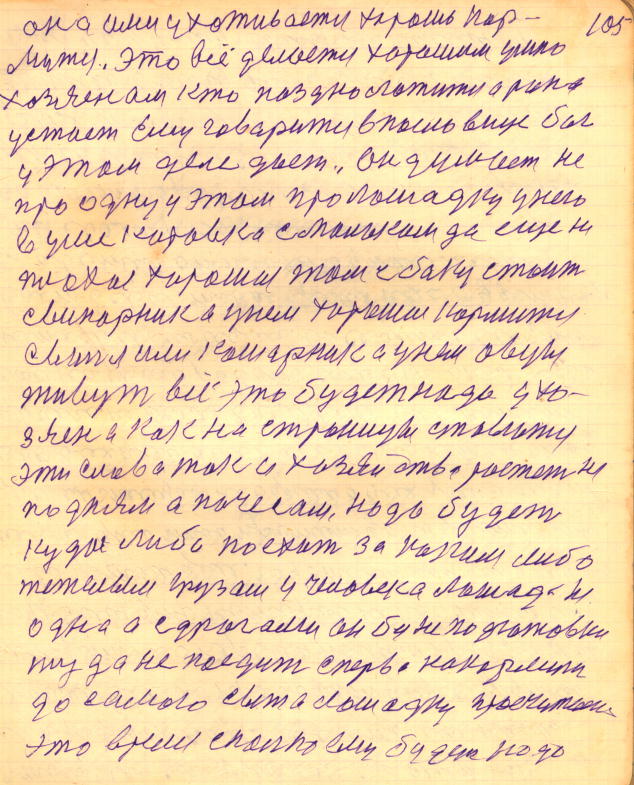 она ими ухаживаеть хорошо кор- 105
мить., Это всё делаеть хорошим умно
хозяенам кто поздно ложитца рана
устает Ему говарить в пословице бог
у этом деле дает., Он думает не
про одну у этом про лошадку у него
коровка с молоком да еще и
хорошия том с баку стоит
свинарник а у нем хорошия кормить
свиньи или кошарник а у нем овцы
живут всё это будет надо у хо-
зяена как на страницы ставить
эти слова так и хозяйство растет не
по дням а по чесам, надо будет
куда либо поехат за каким либо
тежолым грузам у человека лошадь
одна а с дрогами он бу не подготовки
туда не поедит сперва накормить
до самого света лошадку просчитает
это время сколько ему будет надо